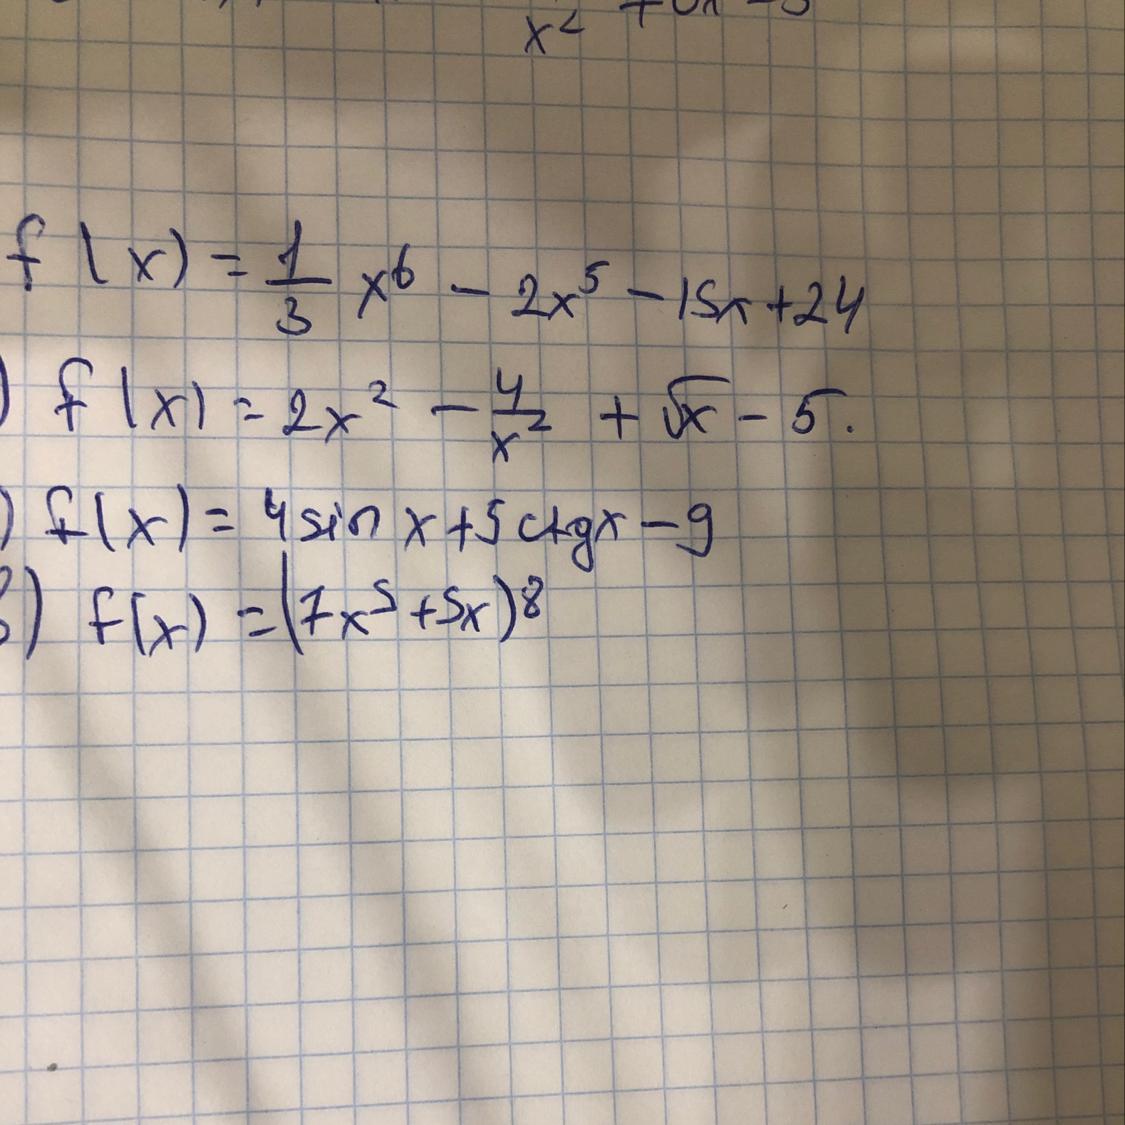 x²
f(x) = 1/3 x⁶ - 2x⁵ - 15x + 24
) f(x) = 2x² - 4/x² + √x - 5.
) f(x) = 4 sin x + 5 ctgx - 9
) f(x) = (7x⁵ + 5x)⁸